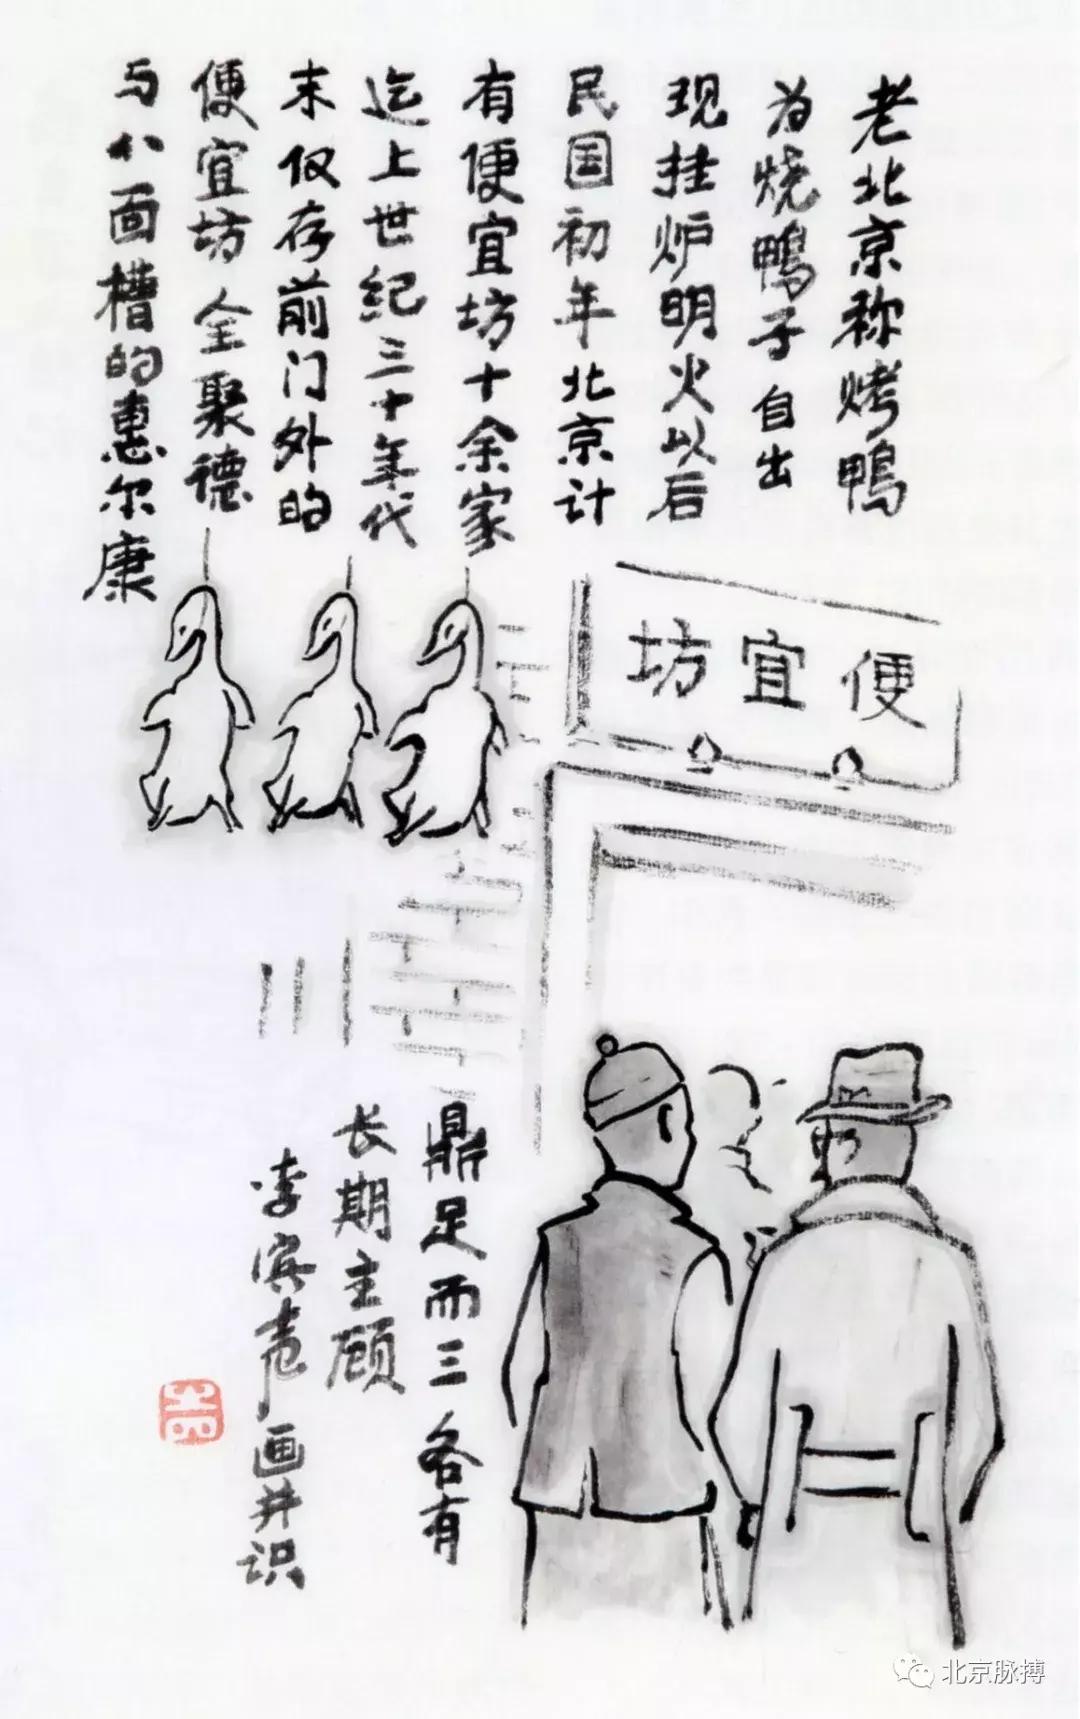 老北京称烤鸭
为烧鸭子自出
现挂炉明火以后
民国初年北京计
有便宜坊十余家
迄上世纪三十年代
末仅存前门外的
便宜坊全聚德
与八面槽的惠尔康
便宜坊
鼎足而三各有
长期主顾
李宾声画并识
北京脉搏